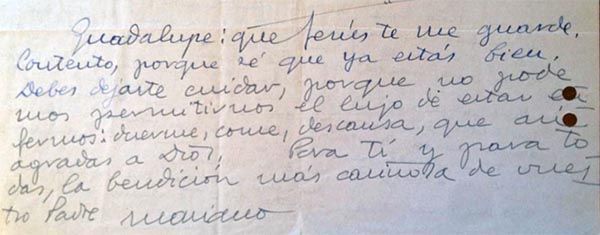 Guadalupe: que Jesús te me guarde.
Contento, porque sé que ya estás bien.
Debes dejarte cuidar, porque no pode
mos permitirnos el lujo de estar en
fermos: duerme, come, descansa, que así
agradas a Dios. Para tí y para to
das, la bendición más cariñosa de vues
tro Padre Mariano